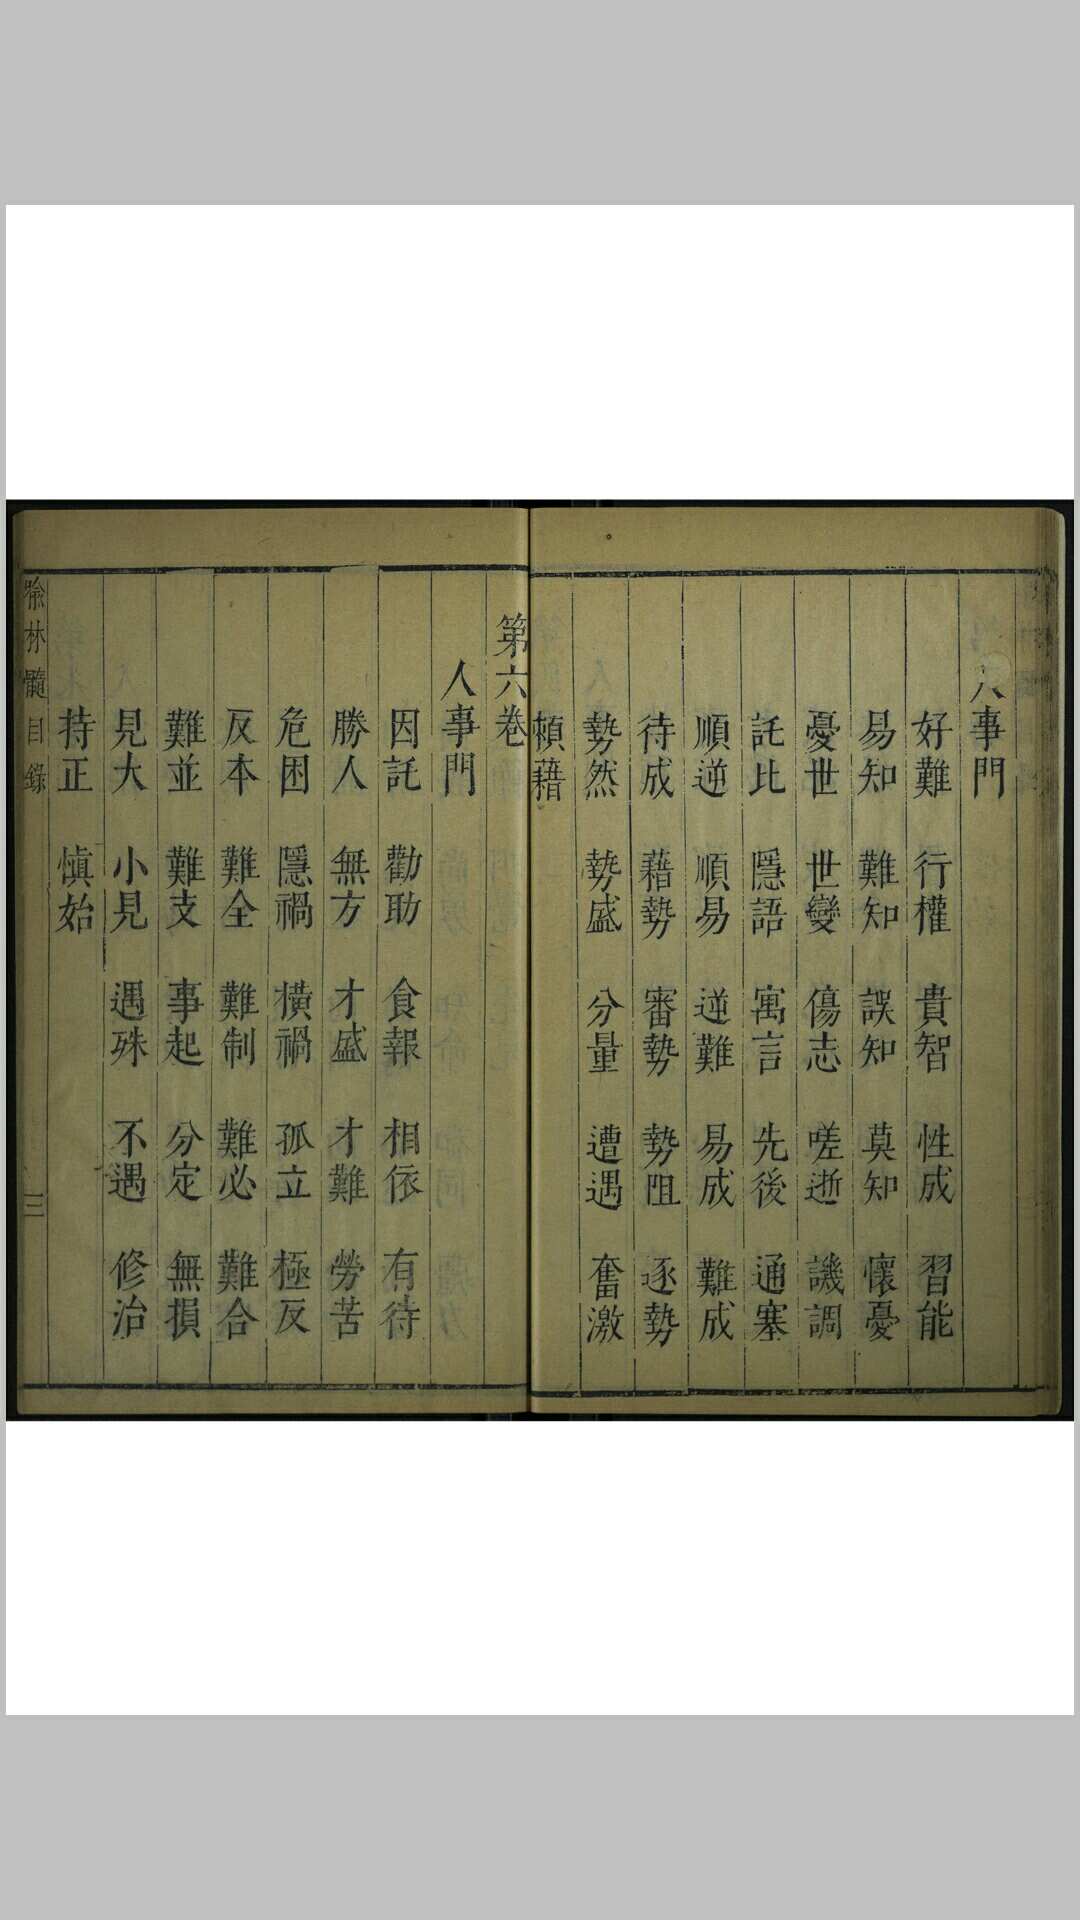 人事門
好難 行權 貴智 性成 習能
易知 難知 誤知 莫知 懷憂
憂世 世變 傷志 嗟逝 譏調
託比 隱語 寓言 先後 通塞
順逆 順易 逆難 易成 難成
待成 藉勢 審勢 勢阻 逐勢
勢然 勢盛 分量 遭遇 奮激
頼藉
第六巻
人事門
因託 勸助 食報 相依 有待
勝人 無方 才盛 才難 勞苦
危困 隱禍 橫禍 孤立 極反
反本 難全 難制 難必 難合
難並 難支 事起 分定 無損
見大 小見 遇殊 不遇 修治
持正 慎始
喻林髓 目錄 三